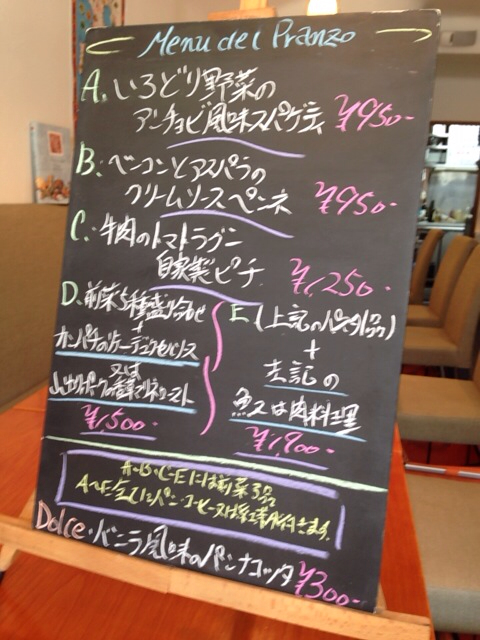 Menu del Pranzo
A. いろどり野菜の
アンチョビ風味スパゲティ ¥950-
B. ベーコンとアスパラの
クリームソースペンネ ¥950-
C. 牛肉のトマトラグー
自家製ピチ ¥1,250-
D. 前菜5種盛り合わせ
+
カンパチの
又は
¥1,500-
E (上記のパスタ1品)
+
左記の
魚又は肉料理
¥1,900-
A・B・C・Eには前菜3品
パン・コーヒー又は紅茶付きます。
Dolce・バニラ風味のパンナコッタ ¥300-